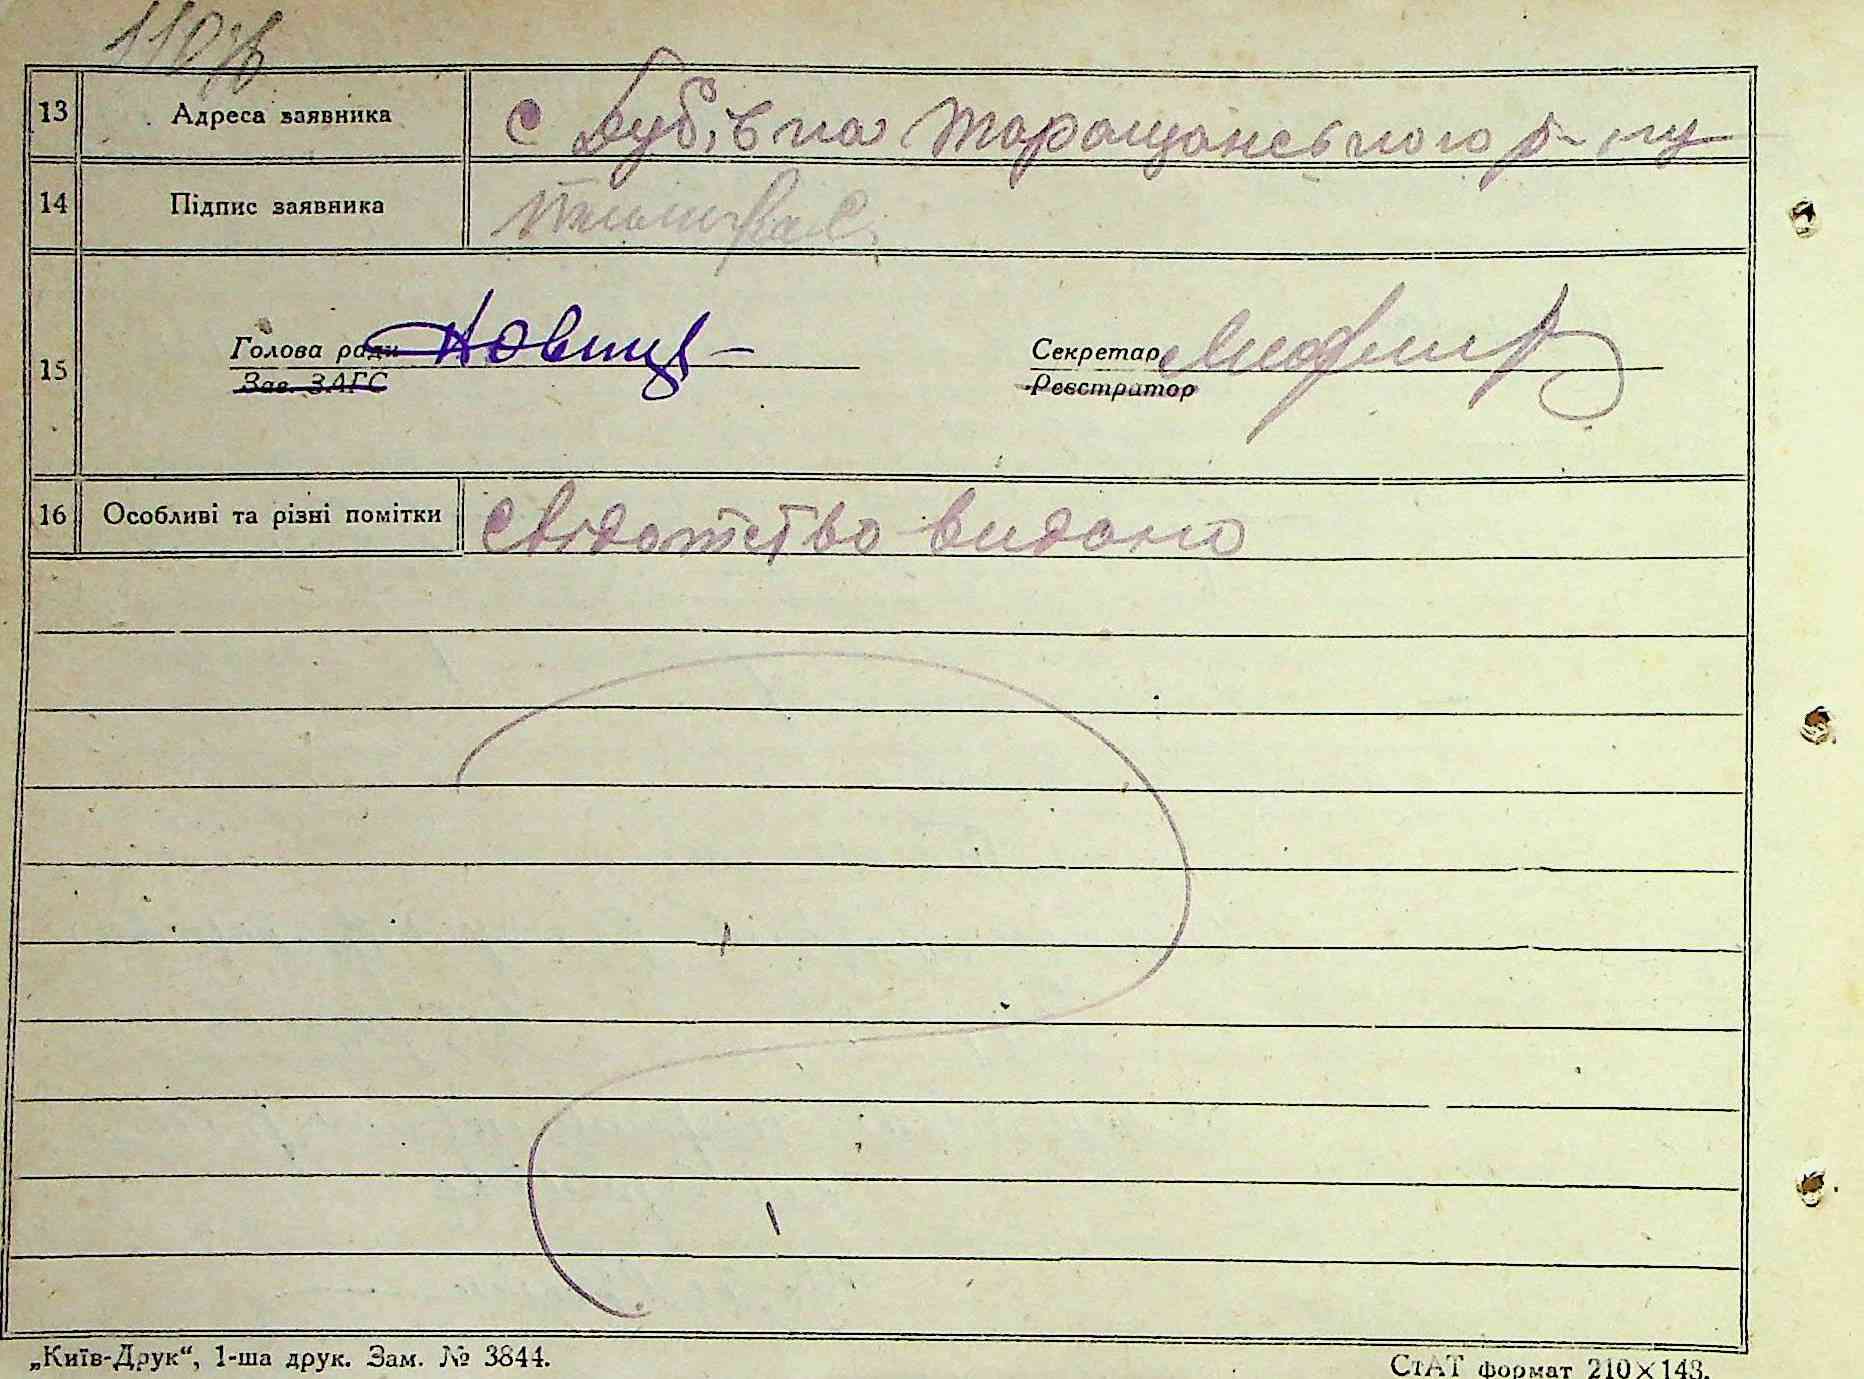 13 Адреса заявника с Дубівка Таращанського р-ну
14 Підпис заявника
15 Голова ради Секретар
Зав. ЗАГС Реєстратор
16 Особливі та різні помітки свідотство видано
„Київ-Друк“, 1-ша друк. Зам. № 3844. СтАТ формат 210×143.